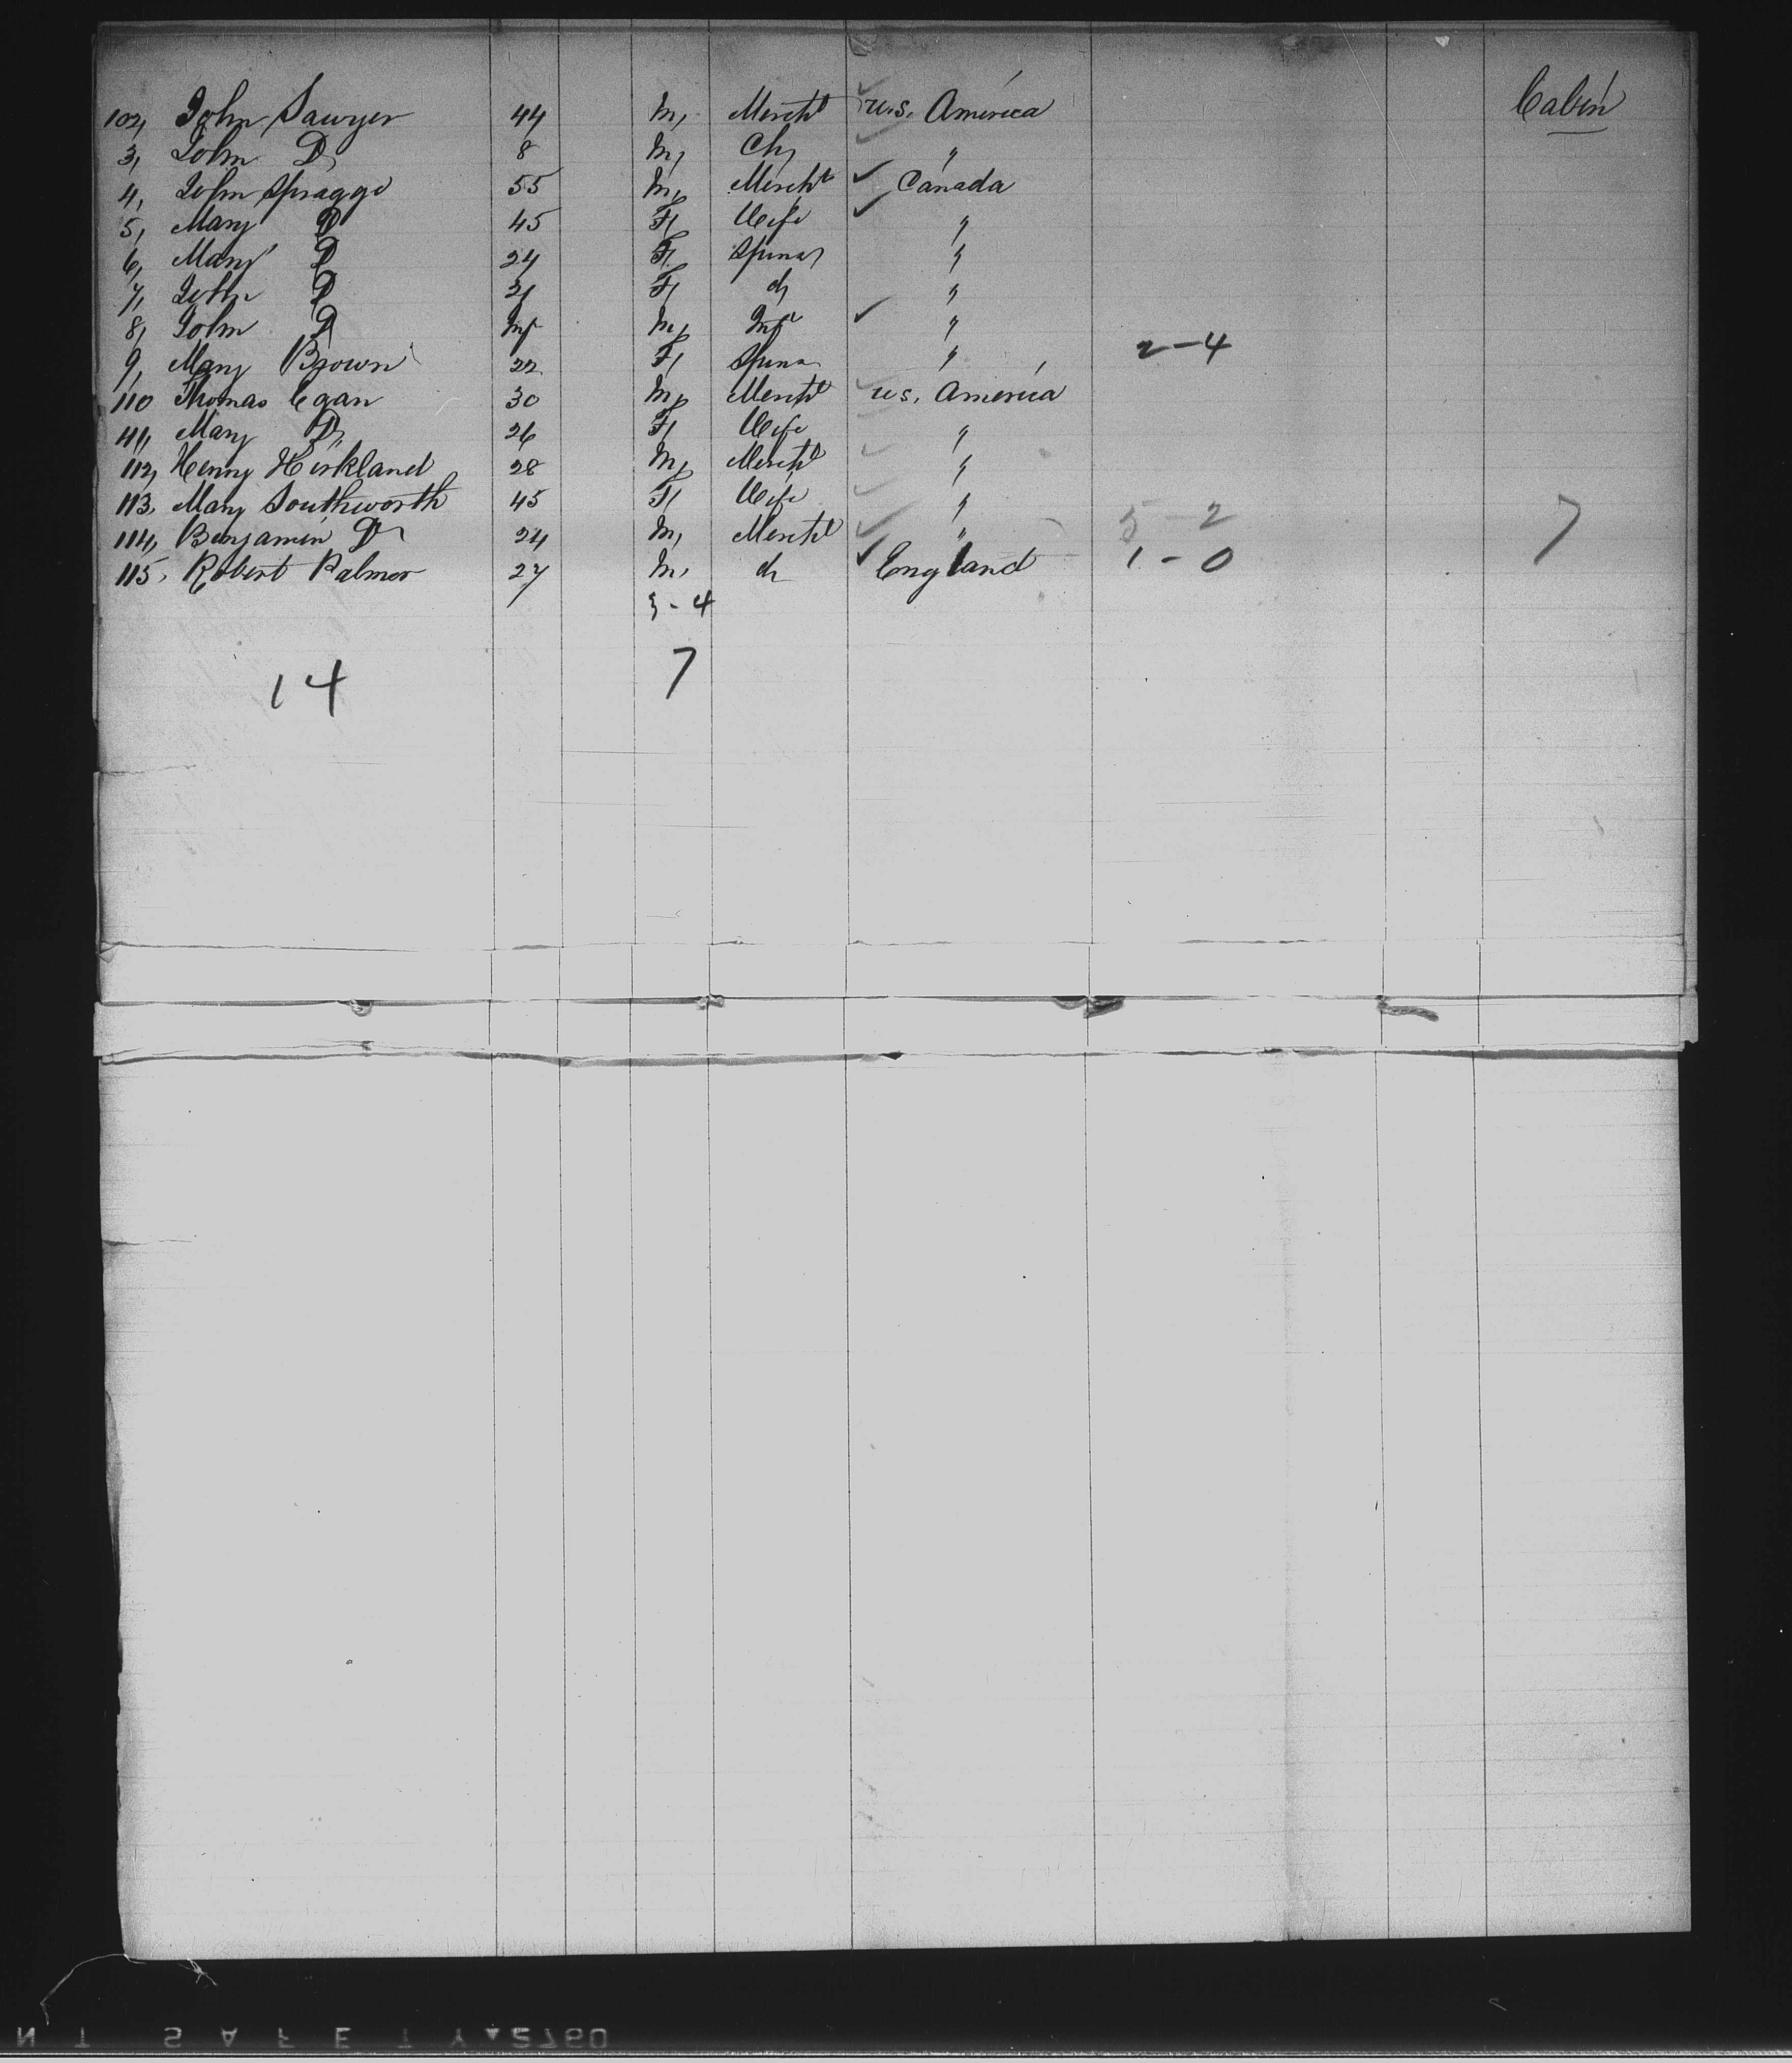 102, John Sawyer 44 M, Mercht U.S. America Cabin
3, John D, 8 M, Ch, "
4, John Spragge 55 M, Mercht Canada
5, Mary D 45 F, Wife "
6, Mary D 24 F, Spins "
7, John D 21 F, d, "
8, John D Inf M, Inf "
9, Mary Brown 22 F, Spins " 2-4
110 Thomas Egan 30 M, Mercht U.S. America
111, Mary D, 26 F, Wife "
112, Henry Kirkland 28 M, Mercht "
113, Mary Southworth 45 F, Wife "
114, Benjamin D 24 M, Mercht " 5-2 7
115, Robert Palmer 27 M, d England 1-0
3-4
14 7
NT SAFETY 2760